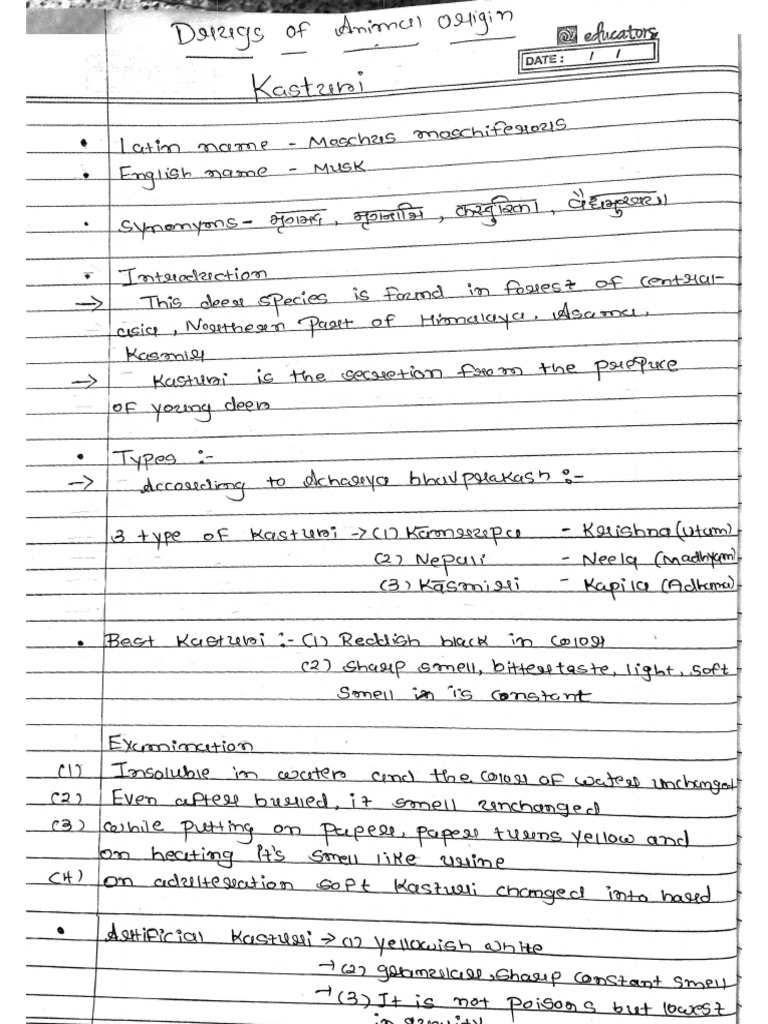 Drugs of Animal Origin
educators
DATE: / /
Kasturi
• Latin name - Moschus moschiferous
• English name - Musk
• Synonyms - मृगमद, मृगनाभि, कस्तुरिका,
• Introduction
→ This deer species is found in forest of central-
asia, Northern Part of Himalaya, Asama,
Kasmir
→ Kasturi is the secretion from the prepuce
of young deer
• Types :-
→ According to Acharya bhavprakash :-
3 type of Kasturi → (1) Kamrupa - Krishna (Utam)
(2) Nepali - Neela (Madhyam)
(3) Kāsmiri - Kapila (Adhama)
• Best Kasturi :- (1) Reddish black in color
(2) sharp smell, bitter taste, light, soft
Smell is constant
Examination
(1) Insoluble in water and the color of water unchanged
(2) Even after buried, it smell unchanged
(3) while putting on paper, paper turns yellow and
on heating it's smell like urine
(4) on adulteration soft Kasturi changed into hard
• Artificial Kasturi → (1) yellowish white
→ (2) granular, sharp constant smell
→ (3) It is not poisons but lowest
in